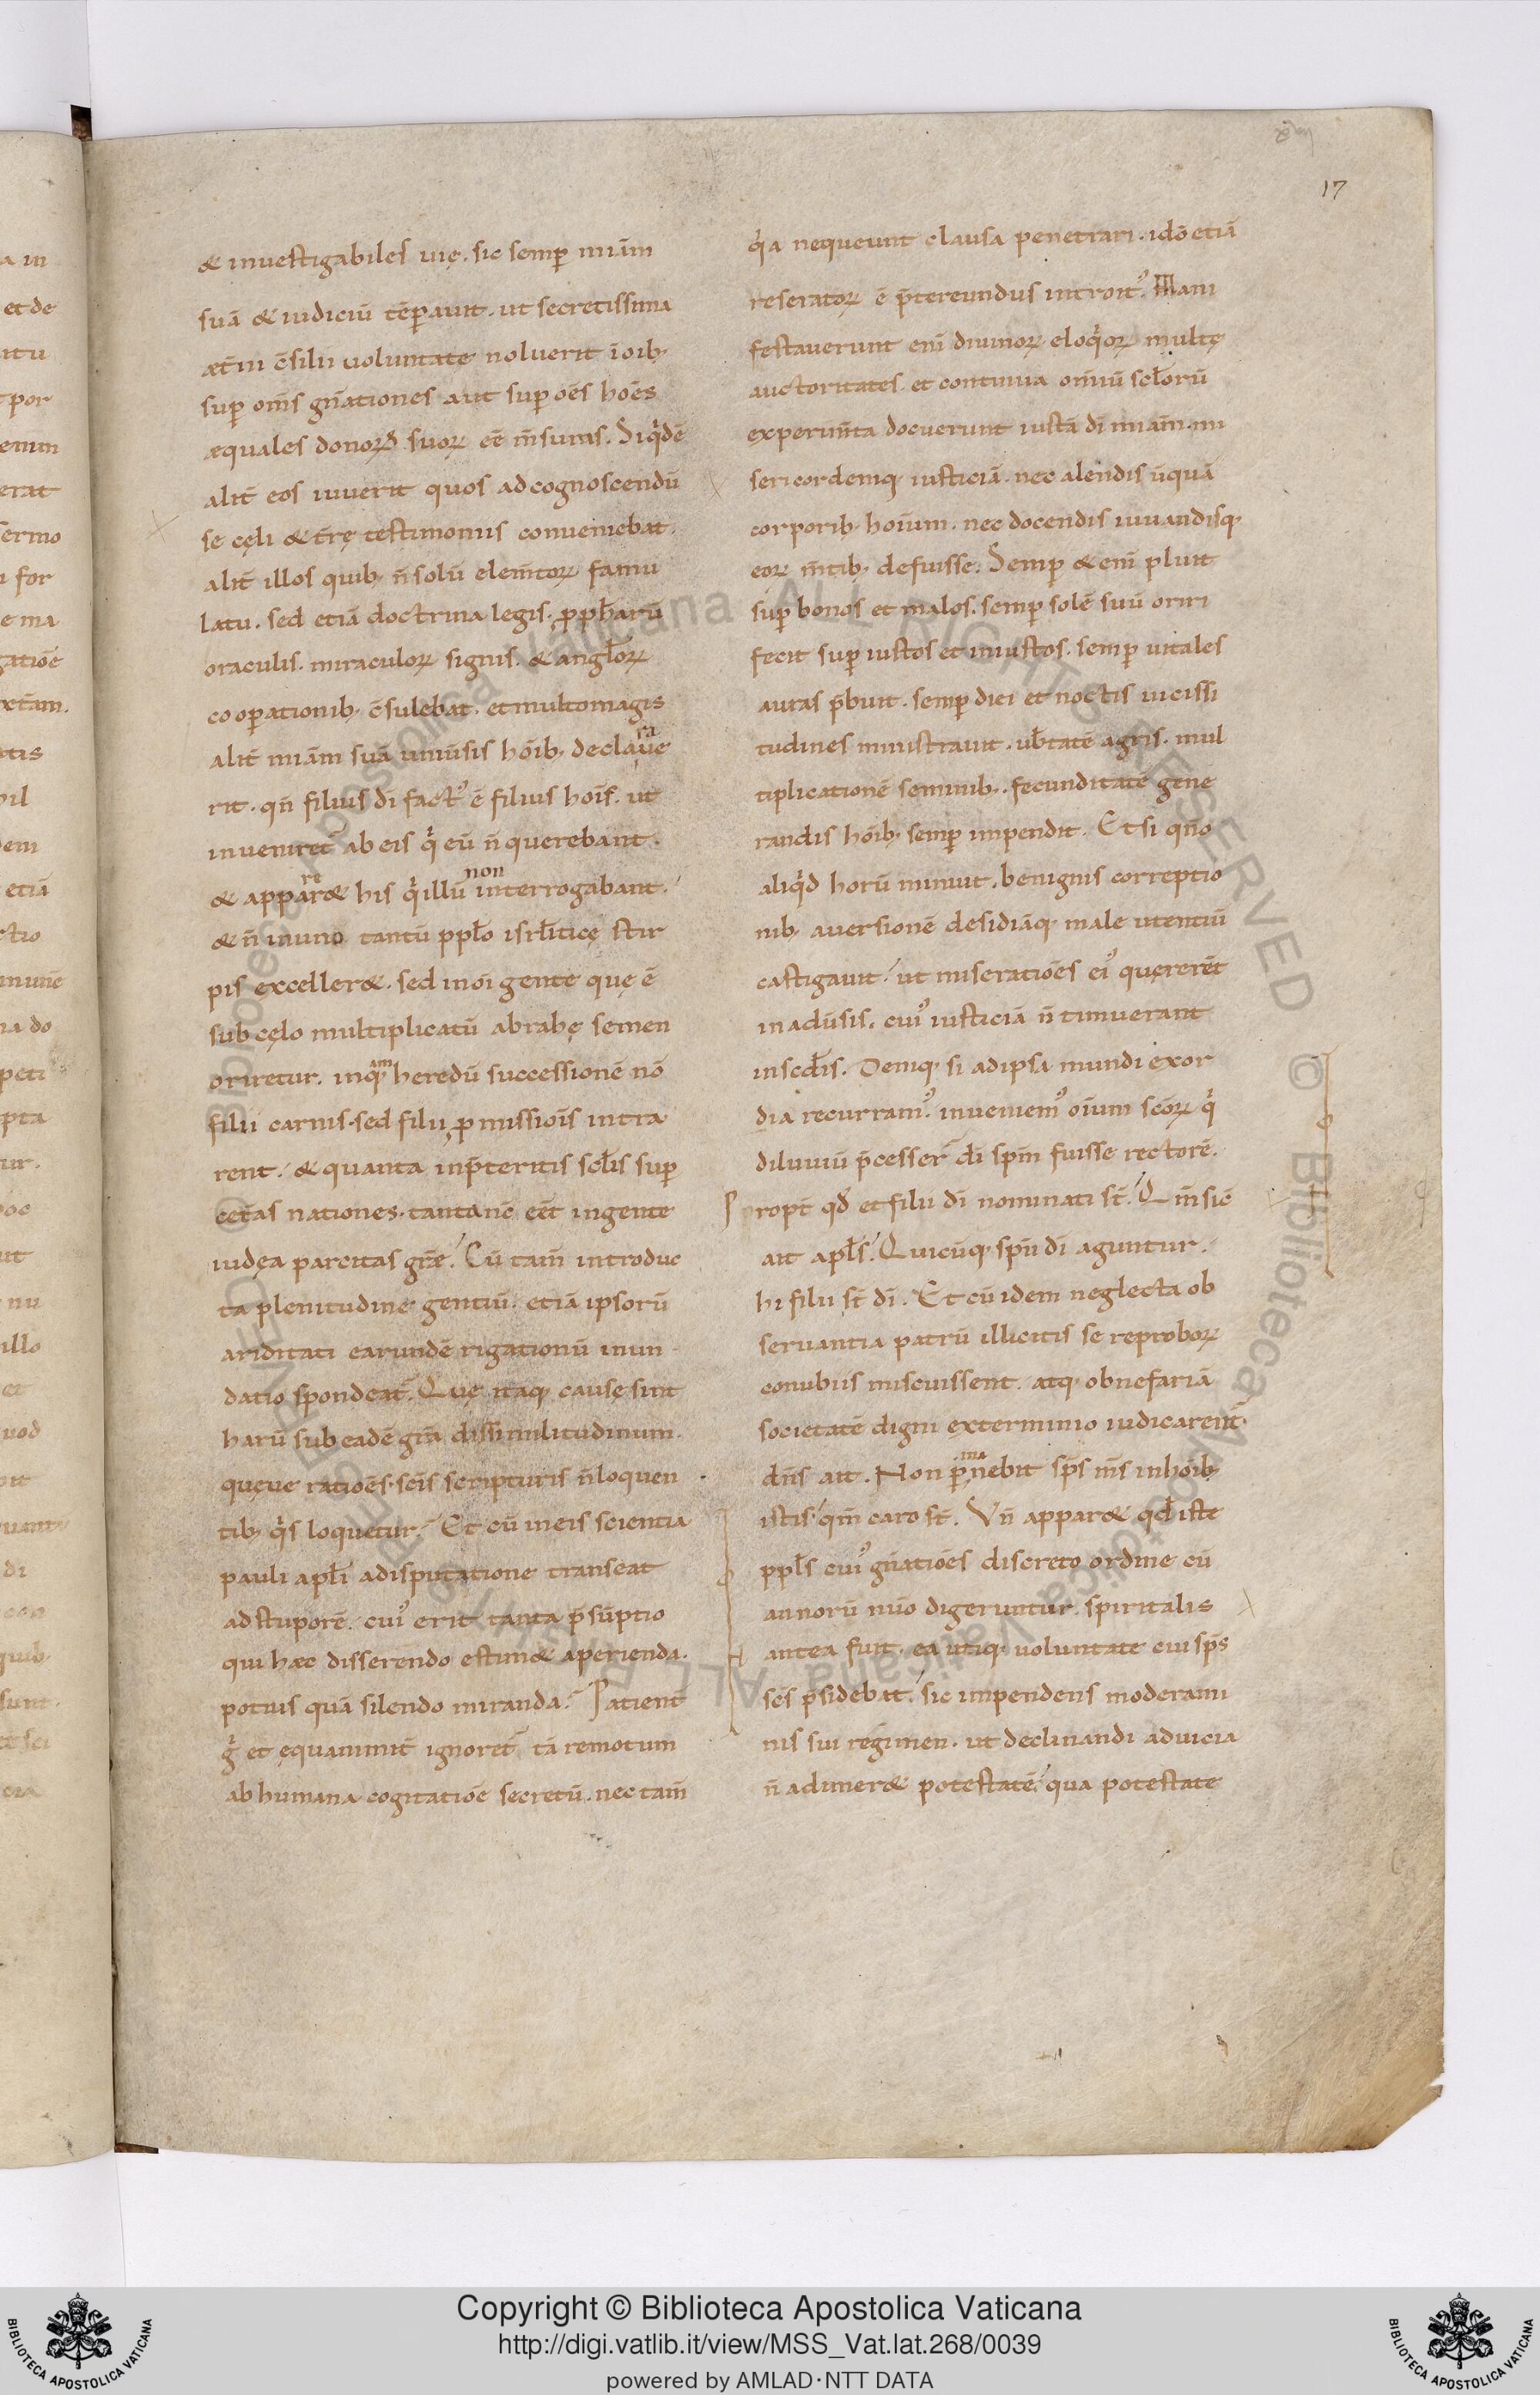 17
& inuestigabiles uię. sic semp̱ mīam
suā & iudiciū tēp̱auit. ut secretissima
æt̄ni c̄silii voluntate noluerit ī oīb;
sup̱ om̄s gn̄ationes aut sup̱ oēs hoēs
æquales donoꝝ suoꝝ eē m̄suras. Siqͥdē
alit̄ eos iuuerit quos ad cognoscendū
se cęli & t̄rę testimoniis conueniebat.
alit̄ illos quib; n̄ solū elem̄toꝝ famu
latu. sed etiā doctrina legis. ꝓph̄arū
oraculis. miraculoꝝ signis. & angl̄oꝝ
cooꝑationib; c̄sulebat. et multomagis
alit̄ mīam suā uniūsis hōib; declaraue
rit. qn̄ filius dī fact᾽ ē filius hoīs. ut
inueniret᷑ ab eis qͥ eū n̄ querebant.
& apparer& his qͥ illū non interrogabant.
& n̄ in uno tantū ppl̄o isrl̄iticę stir
pis exceller&. sed in oī gente quę ē
sub cęlo multiplicatū abrahę semen
oriretur. in quam heredū successionē nō
filii carnis. sed filii ꝓmissioīs intra
rent. & quanta in p̄teritis scl̄is sup̱
cet̄as nationes. tanta nc̄ eēt in gente
iudęa parcitas grę̄. Cū tam̄ introduc
ta plenitudine gentiū. etiā ipsorū
ariditati earundē rigationū inun
datio spondeat᷑. Quę itaq; causę sint
harū sub eadē gr̄a dissimilitudinum.
quęue ratioēs. scīs scripturis n̄ loquen
tib; qͥs loquetur. Et cū in eis scientia
pauli apl̄i a disputatione transeat
ad stuporē. cui᾽ erit tanta p̄sūptio
qui hæc disserendo estim& aperienda.
potius quā silendo miranda. Patient̄
gͥ et ęquanimit̄ ignoret᷑ tā remotum
ab humana cogitatiōe secretū. nec tam̄
qͥa nequeunt clausa penetrari. idō etiā
reseratoꝝ ē p̄tereundus introit᾽. Mani
festauerunt enī diuinoꝝ eloqͥoꝝ multę
auctoritates. et continua omniū scl̄orū
experim̄ta docuerunt iustā dī mīam. mi
sericordemq; iusticiā. nec alendis ūquā
corporib; hoīum. nec docendis iuuandisq;
eoꝝ m̄tib; defuisse. Semp̱ & enī pluit
sup̱ bonos et malos. semp̱ solē suū oriri
fecit sup̱ iustos et iniustos. semp̱ uitales
auras p̄buit. semp̱ diei et noctis uicissi
tudines ministrauit. ub̄tatē agris. mul
tiplicationē seminib;. fecunditatē gene
randis hōib; semp̱ impendit. Et si qn̄o
aliqͥd horū minuit. benignis correptio
nib; auersionē desidiāq; male utentiū
castigauit. ut miseratioēs ei᾽ quęrerēt
in adūsis. cui᾽ iusticiā n̄ timuerant
in scd̄is. Deniq; si ad ipsa mundi exor
dia recurram᾽. inueniem᾽ oīum sc̄oꝝ qͥ
diluuiū p̄cesser̄ dī spm̄ fuisse rectorē.
Propt̄ qđ et filii dī nominati st̄. Qm̄ sic
ait apl̄s. Quicūq; spū dī aguntur.
hi filii st̄ dī. Et cū idem neglecta ob
seruantia patrū illicitis se reproboꝝ
conubiis miscuissent. atq; ob nefariā
societatē digni exterminio iudicarent᷑.
dn̄s ait. Non ꝑmanebit sp̄s m̄s in hōib;
istis. qm̄ caro st̄. Vn̄ appar& qđ iste
ppl̄s cui᾽ gn̄atioēs discreto ordine cū
annorū nūo digeruntur. spiritalis
antea fuit. ea utiq; uoluntate cui sp̄s
sc̄s p̄sidebat. sic impendens moderami
nis sui regimen. ut declinandi ad uicia
n̄ adimer& potestatē. qua potestate
Copyright © Biblioteca Apostolica Vaticana
http://digi.vatlib.it/view/MSS_Vat.lat.268/0039
powered by AMLAD·NTT DATA
BIBLIOTECA APOSTOLICA VATICANA
BIBLIOTECA APOSTOLICA VATICANA